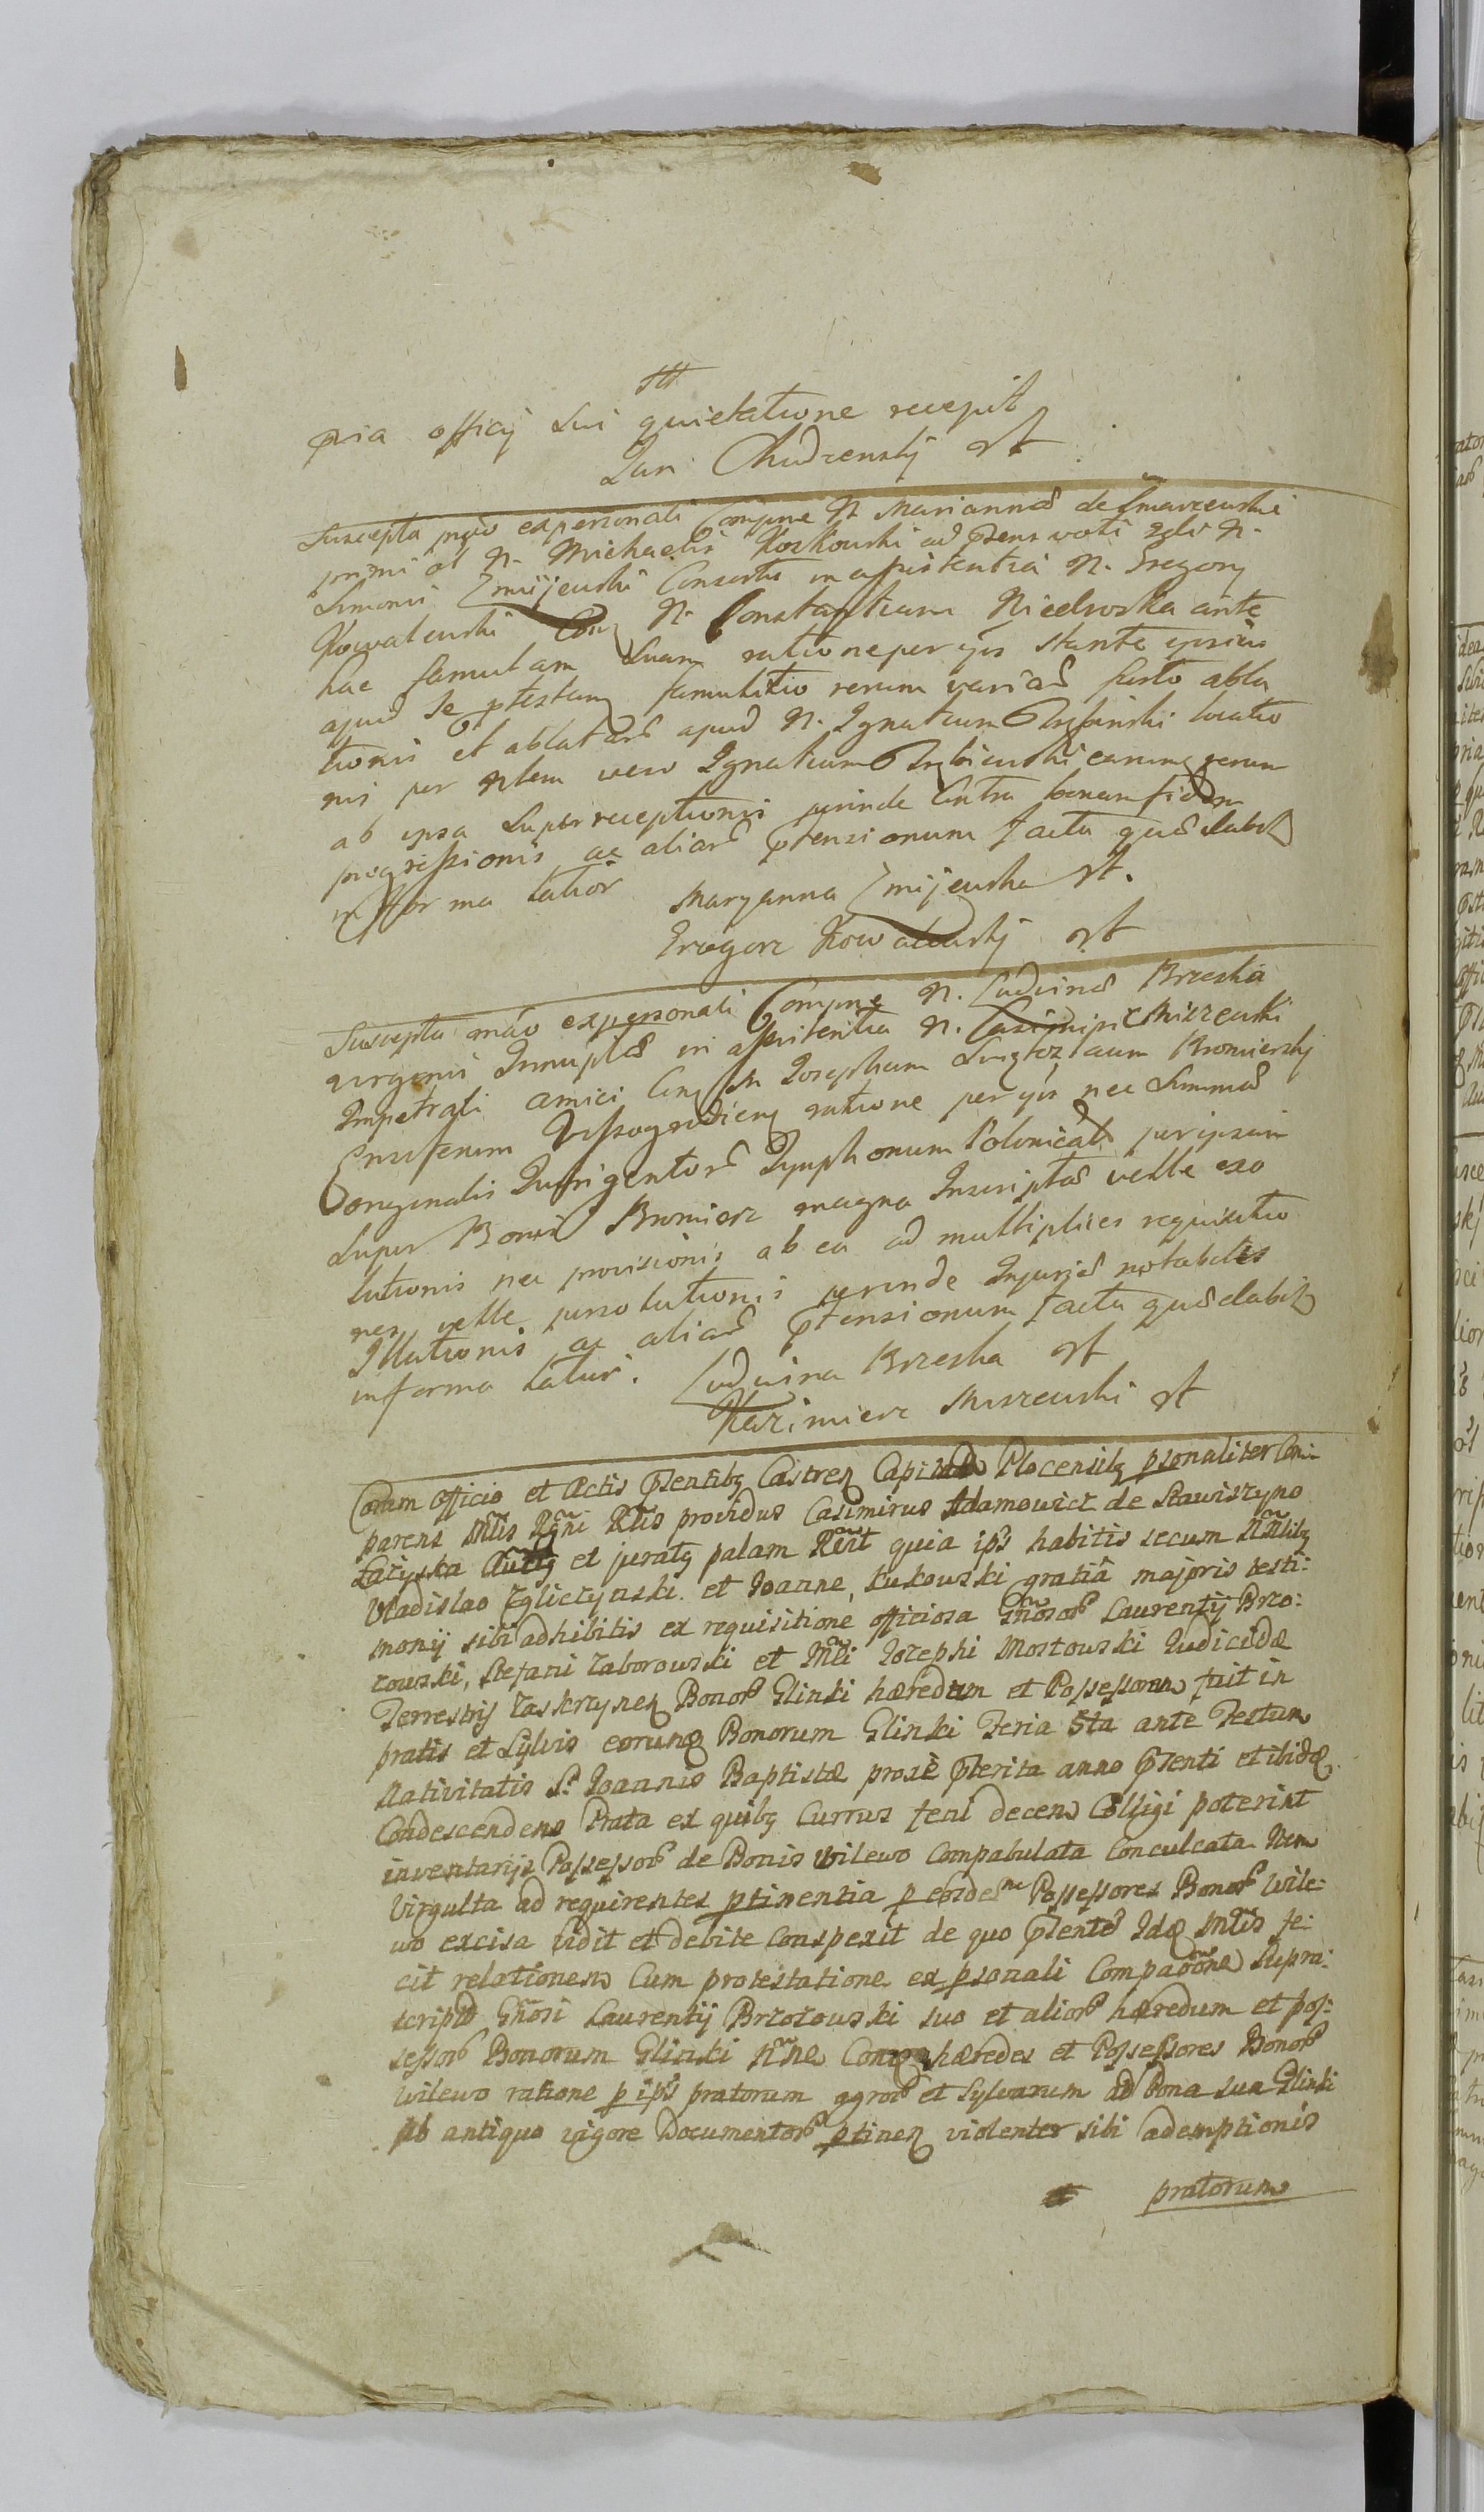 pria officij sui quietatione recepit
Jan Chudzenskij mp
Suscepta mąo ex personali Compne N. Mariannæ de Smarzewskie
primi ol N. Michaelis Kozkowski ad pręns voti 2do N.
Simonis Zmijewski Consortis in assistentia N. Gregorij
Kowalewski Con N. Constantiam Niedroska ante
hac famulam suam ratione per ejus stante ipsius
apud se ptextam famulitio rerum variar furto abla
tionis et ablatar apud N. Ignatium locatio
nis per Ndem vero Ignatium earum rerum
ab ipsa superreceptionis perinde Contra bonam fidem
progressionis ac aliar ptensionum facta quæ dabit
in forma latior Maryanna Zmijewska mp.
Grzegorz Kowalewskij mp
Suscepta mão ex personali Compne N. Ludvinæ Brzeska
virginis Innuptæ in assistentia N. Casimiri Miszewski
Impetrati amici Con M Josephum Kromierskj
Ensiferum Vyssogrodien ratione per ejus nec summæ
originalis Quingentor Tymphonum Polonical per ipsum
super Bonis Bromierz magna Inscriptæ velle exo
lutionis nec provisionis ab ea ad multiplices requisitio
nes velle persolutionis perinde Injuriæ notabiles
Illationis ac aliar ptensionum facta quæ dabit
in forma latiori. Ludwina Brzeska mp
Kazimierz Miszewski mp
Coram Officio et Actis pręntibq Castren Capitd Plocensibq psonaliter Com:
parens Mtlis Rgni Rlis providus Casimirus Adamowicz de Stawiszyno
Łazyska Autq et juratq palam Rcnt quia ips habitis secum Nblibq
Vladislao Zgliczynski et Joanne Łukowski gratiâ majoris testi:
monij sibi adhibitis ex requisitione officiosa Gnosor Laurentij Brzo:
zowski, Stefani Zaborowski et Mci Josephi Mostowski Judicidæ
Terrestris Zaskrzynen Bonor Glinki hæredum et Possessorum fuit in
pratis et Sylvis eorunq Bonorum Glinki Feria 5ta ante Festum
Nativitatis St. Joannis Baptistæ proxè pterita anno pręnti et ibidę
Condescendens Prata ex quibq Currus feni decem Colligi poterint
inventarijs Possessor de Bonis Wilewo Compabulata Conculcata Item
Virgulta ad requirentes ptinentia p eosdem Possessores Bonor Wile:
wo excisa vidit et debite Conspexit de quo pręnte Idę Mtlis fe:
cit relationem Cum protestatione ex psonali Compaõne supra:
scripto Gnosi Laurentij Brzozowski suo et alior hæredum et pos:
sessor Bonorum Glinki Nne Contra hæredes et Possessores Bonor
Wilewo ratione p ips pratorum agror et Sylvarum ad Bona sua Glinki
ab antiquo vigore Documentor ptinen violenter sibi ademptionis
pratorum